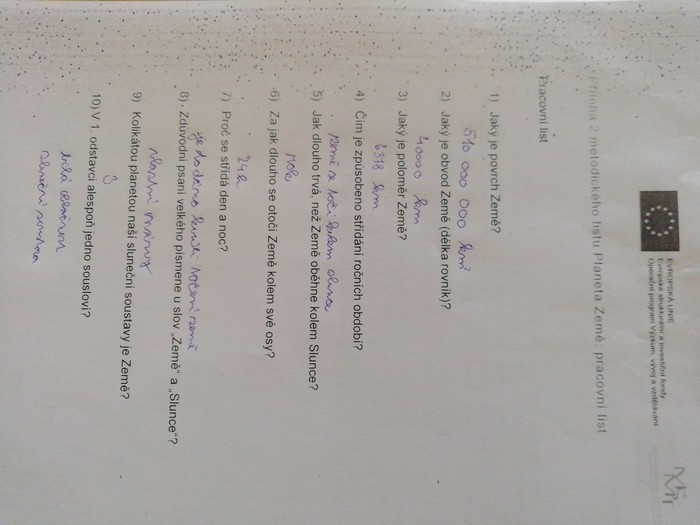 EVROPSKÁ UNIE
Evropské strukturální a investiční fondy
Operační program Výzkum, vývoj a vzdělávání
Příloha 2 metodického listu Planeta Země: pracovní list
Pracovní list
1) Jaký je povrch Země?
510 000 000 km²
2) Jaký je obvod Země (délka rovník)?
40000 km
3) Jaký je poloměr Země?
6378 km
4) Čím je způsobeno střídání ročních období?
země se točí kolem slunce
5) Jak dlouho trvá, než Země oběhne kolem Slunce?
roku
6) Za jak dlouho se otočí Země kolem své osy?
24h
7) Proč se střídá den a noc?
je to dáno kvuli točení země
8) Zdůvodni psaní velkého písmene u slov „Země" a „Slunce"?
vlastní názvy
9) Kolikátou planetou naší sluneční soustavy je Země?
3
10) V 1. odstavci alespoň jedno sousloví?
sluneční soustava